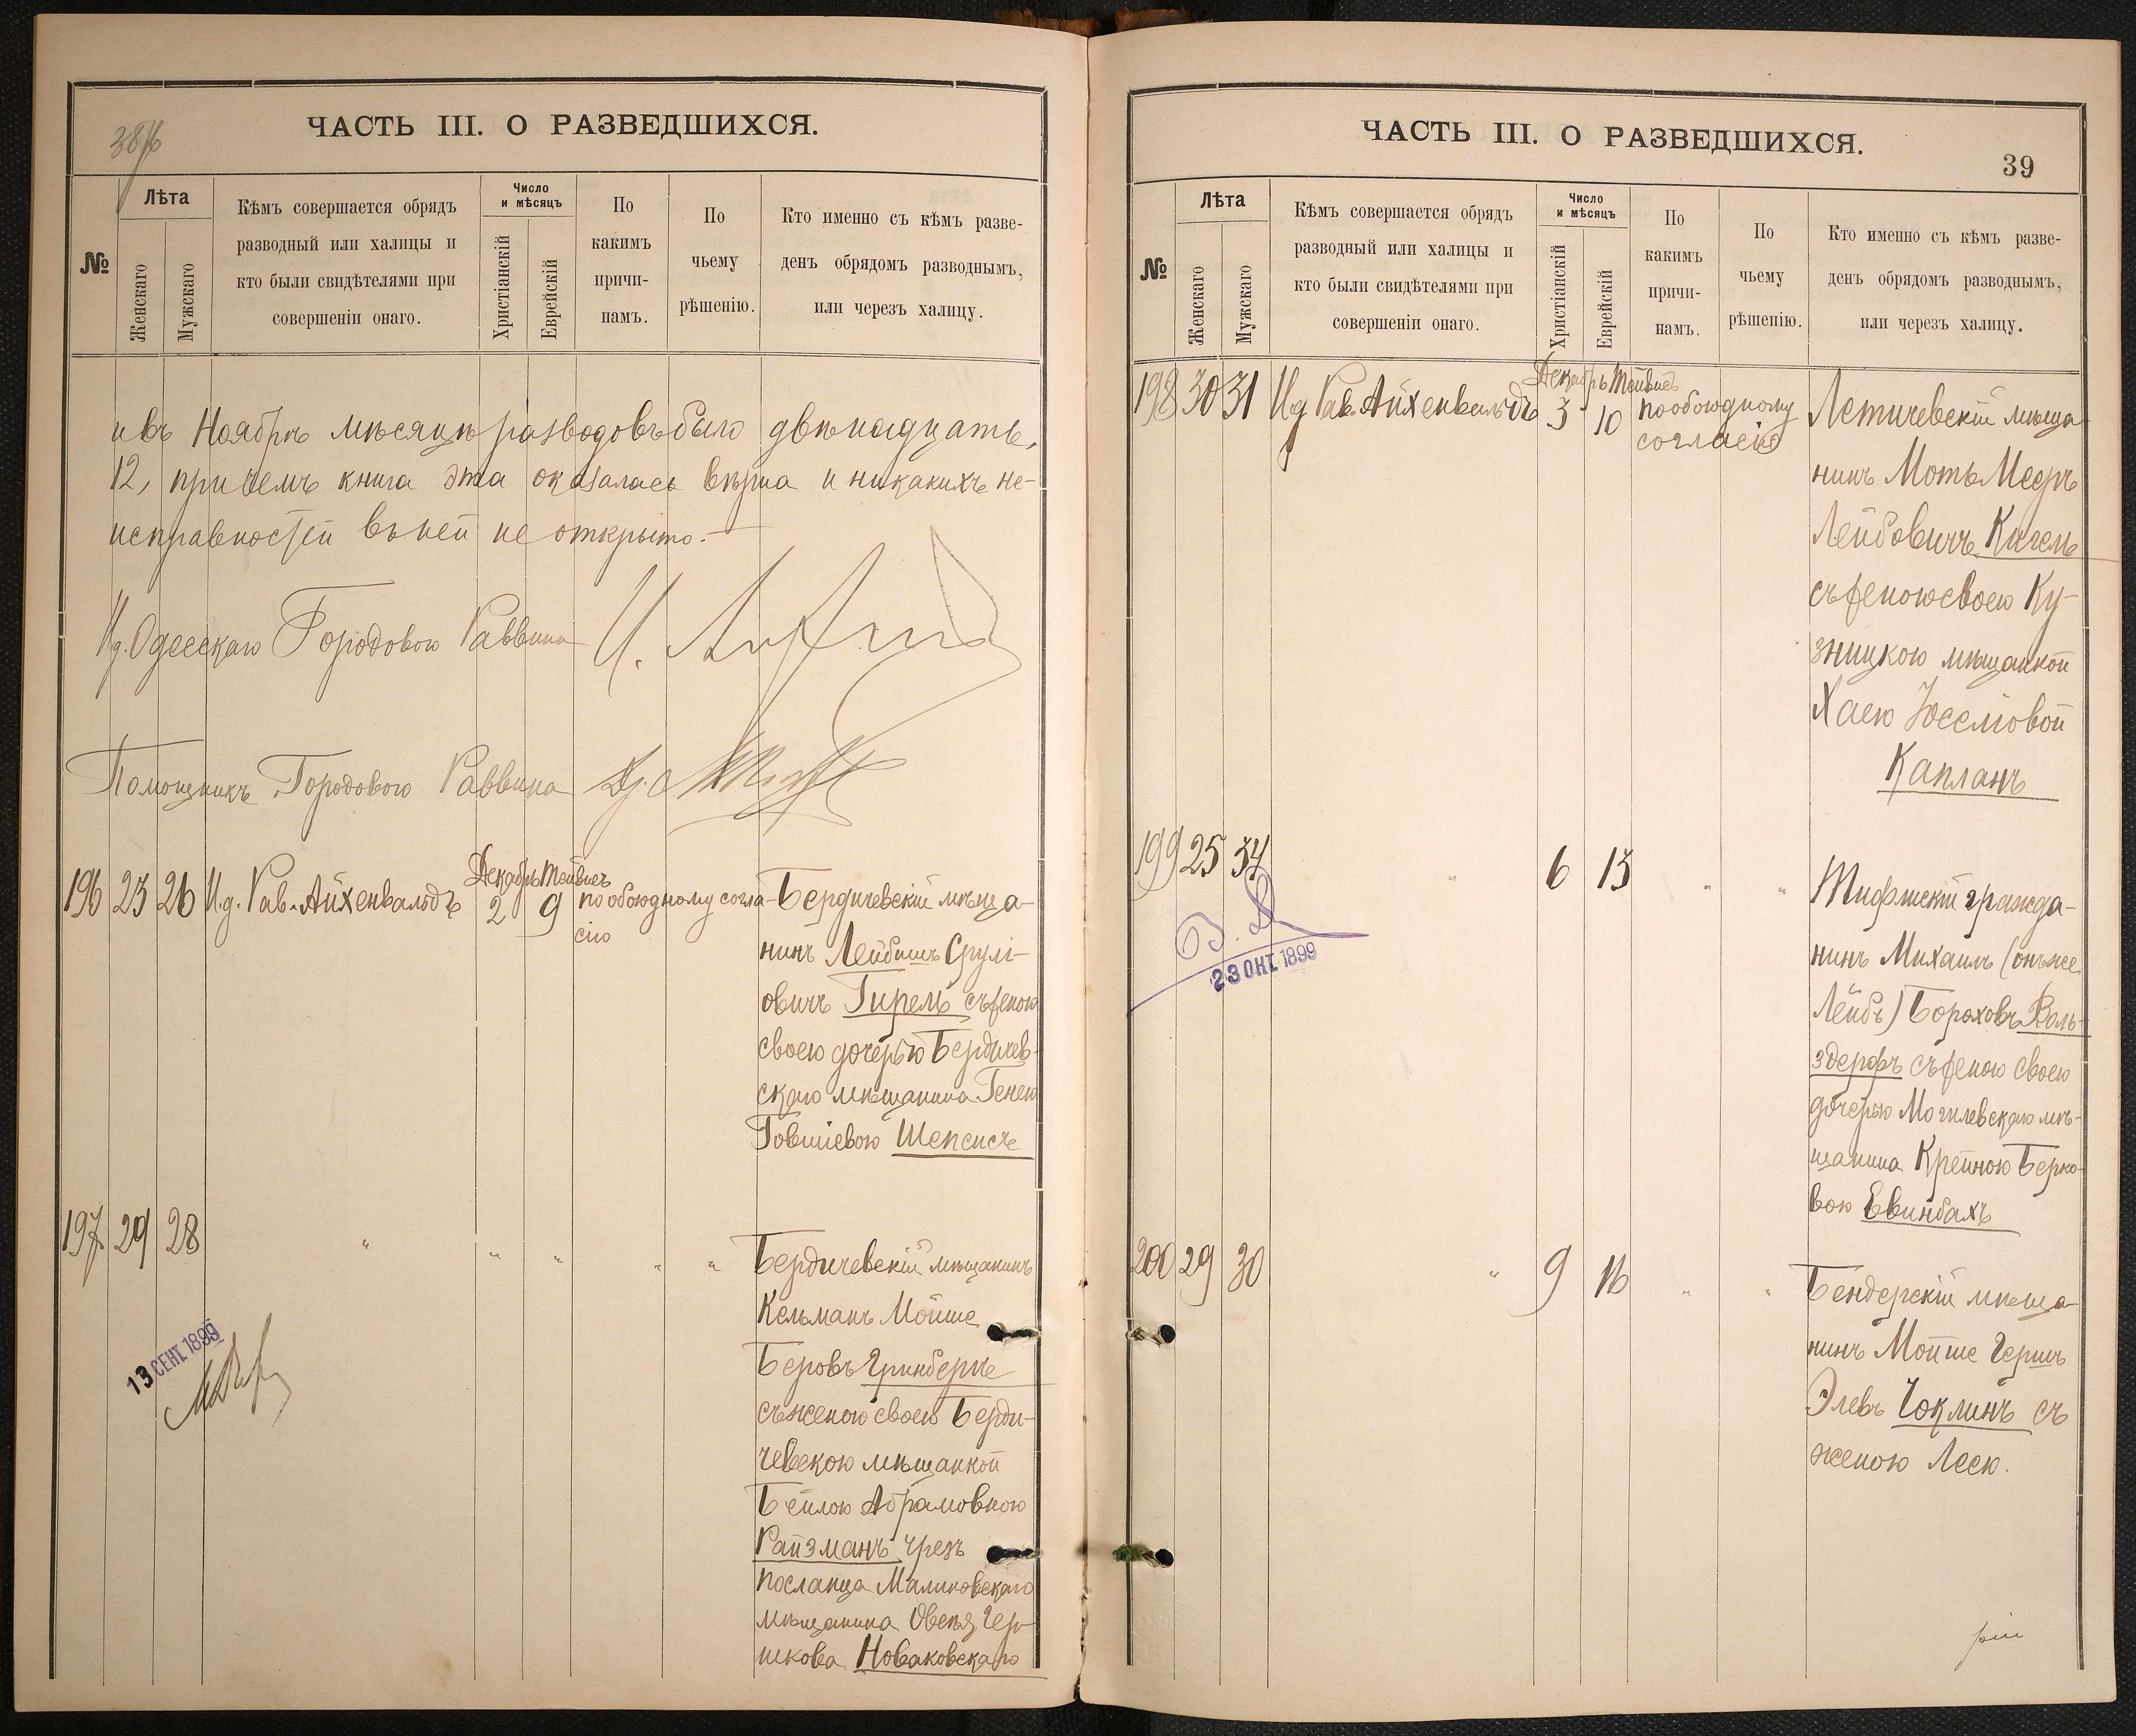 ЧАСТЬ III. О РАЗВЕДШИХСЯ.
№
Лѣта
Женскаго
Мужскаго
Кѣмъ совершается обрядъ
разводный или халицы и
кто были свидѣтелями при
совершеніи онаго.
Число
и мѣсяцъ
Христіанскій
Еврейскій
По
какимъ
причи-
намъ.
По
чьему
рѣшенію.
Кто именно съ кѣмъ разве-
денъ обрядомъ разводнымъ,
или через халицу.
и въ Ноябрѣ мѣсяцѣ разводовъ было двѣнадцать,
12, причемъ книга эта оказалась вѣрна и никакихъ не-
исправностей въ ней не открыто.-
И д. Одесскаго Городового Раввина
Помощникъ Городового Раввина
196 23 26 И.д. Рав. Айхенвальдъ Декабрь 2 Тейвисъ 9 по обоюдному согла-
сію
Бердичевскій мѣща-
нинъ Лейбишъ Срулі-
овичъ Гирель съ женою
своею дочерью Бердичев-
скаго мѣщанина Генею
Говшіевою Шепсисъ
197 29 28 " " " " "
Бердичевскій мѣщанинъ
Кельманъ Мойше
Беровъ Гринбергъ
съ женою своею Берди-
чевскою мѣщанкой
Бейлою Абрамовною
Райзманъ чрезъ
посланца Малиновскаго
мѣщанина Овсея Гер-
шкова Новаковскаго
13 СЕНТ 1899
ЧАСТЬ III. О РАЗВЕДШИХСЯ.
39
№
Лѣта
Женскаго
Мужскаго
Кѣмъ совершается обрядъ
разводный или халицы и
кто были свидѣтелями при
совершеніи онаго.
Число
и мѣсяцъ
Христіанскій
Еврейскій
По
какимъ
причи-
намъ.
По
чьему
рѣшенію.
Кто именно съ кѣмъ разве-
денъ обрядомъ разводнымъ,
или черезъ халицу.
198 30 31 И д Рав. Айхенвальдъ Декабрь 3 Тейвисъ 10 по обоюдному
согласію
Летичевскій мѣща-
нинъ Моть Мееръ
Лейбовичъ Кигель
съ женою своею Ку-
зницкою мѣщанкой
Хаею Іоселіовой
Капланъ
199 25 34 " 6 13 " "
Тифлискій гражда-
нинъ Михаилъ (онъ же
Лейбъ) Бороховъ Валь-
здерфъ съ женою своею
дочерью Могилевскаго мѣ-
щанина Крейною Берко-
вою Евинбахъ
23 ОКТ 1899
200 29 30 " 9 16 " "
Бендерскій мѣща-
нинъ Мойше Гершъ
Элевъ Чоклинъ съ
женою Леею.